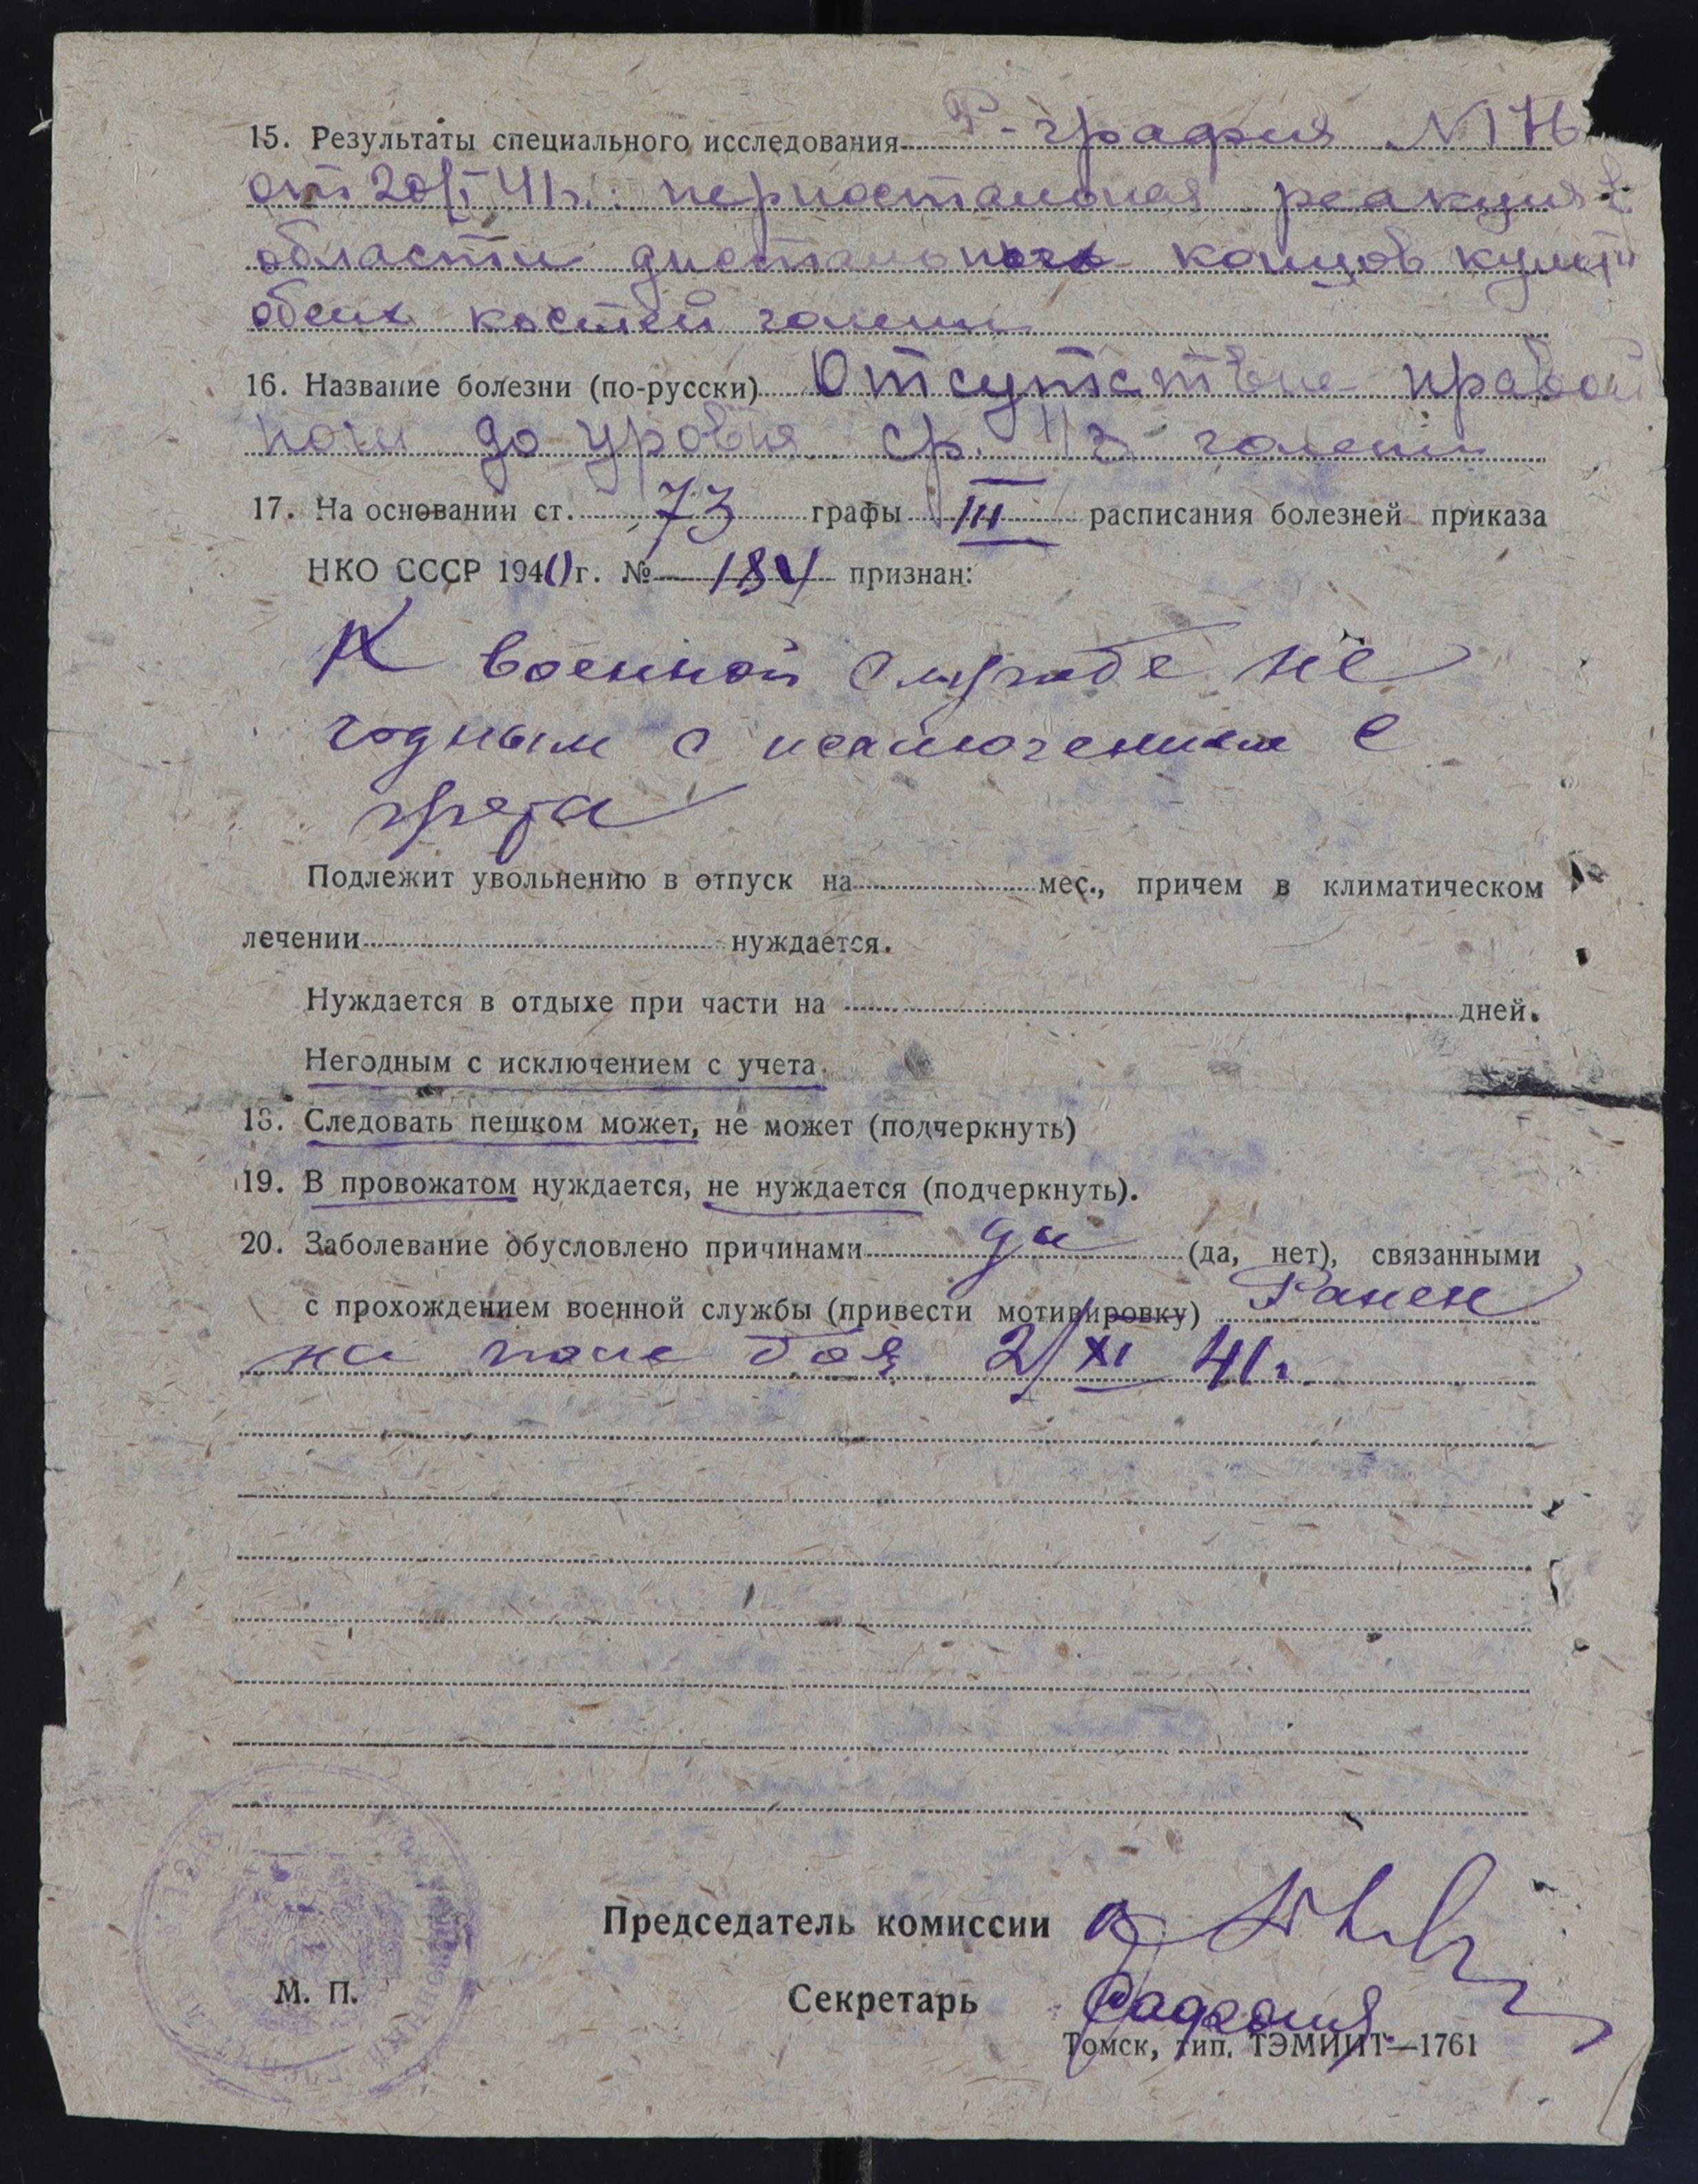 15. Результаты специального исследования Р-графия N 176
от 20/I 41г.: периостальная реакция в
области дистальных концов культи
обеих костей голени
16. Название болезни (по-русски) Отсутствие правой
ноги до уровня ср. 1/3 голени
17. На основании ст. 73 графы III расписания болезней приказа
НКО СССР 1940 г. № 184 признан:
К военной службе не
годным с исключением с
учета
Подлежит увольнению в отпуск на мес., причем в климатическом
лечении нуждается.
Нуждается в отдыхе при части на дней.
Негодным с исключением с учета
18. Следовать пешком может, не может (подчеркнуть)
19. В провожатом нуждается, не нуждается (подчеркнуть).
20. Заболевание обусловлено причинами да (да, нет), связанными
с прохождением военной службы (привести мотивировку) Ранен
на поле боя 2/XI 41г.
Председатель комиссии
М. П.
Секретарь
Томск, тип. ТЭМИИТ—1761